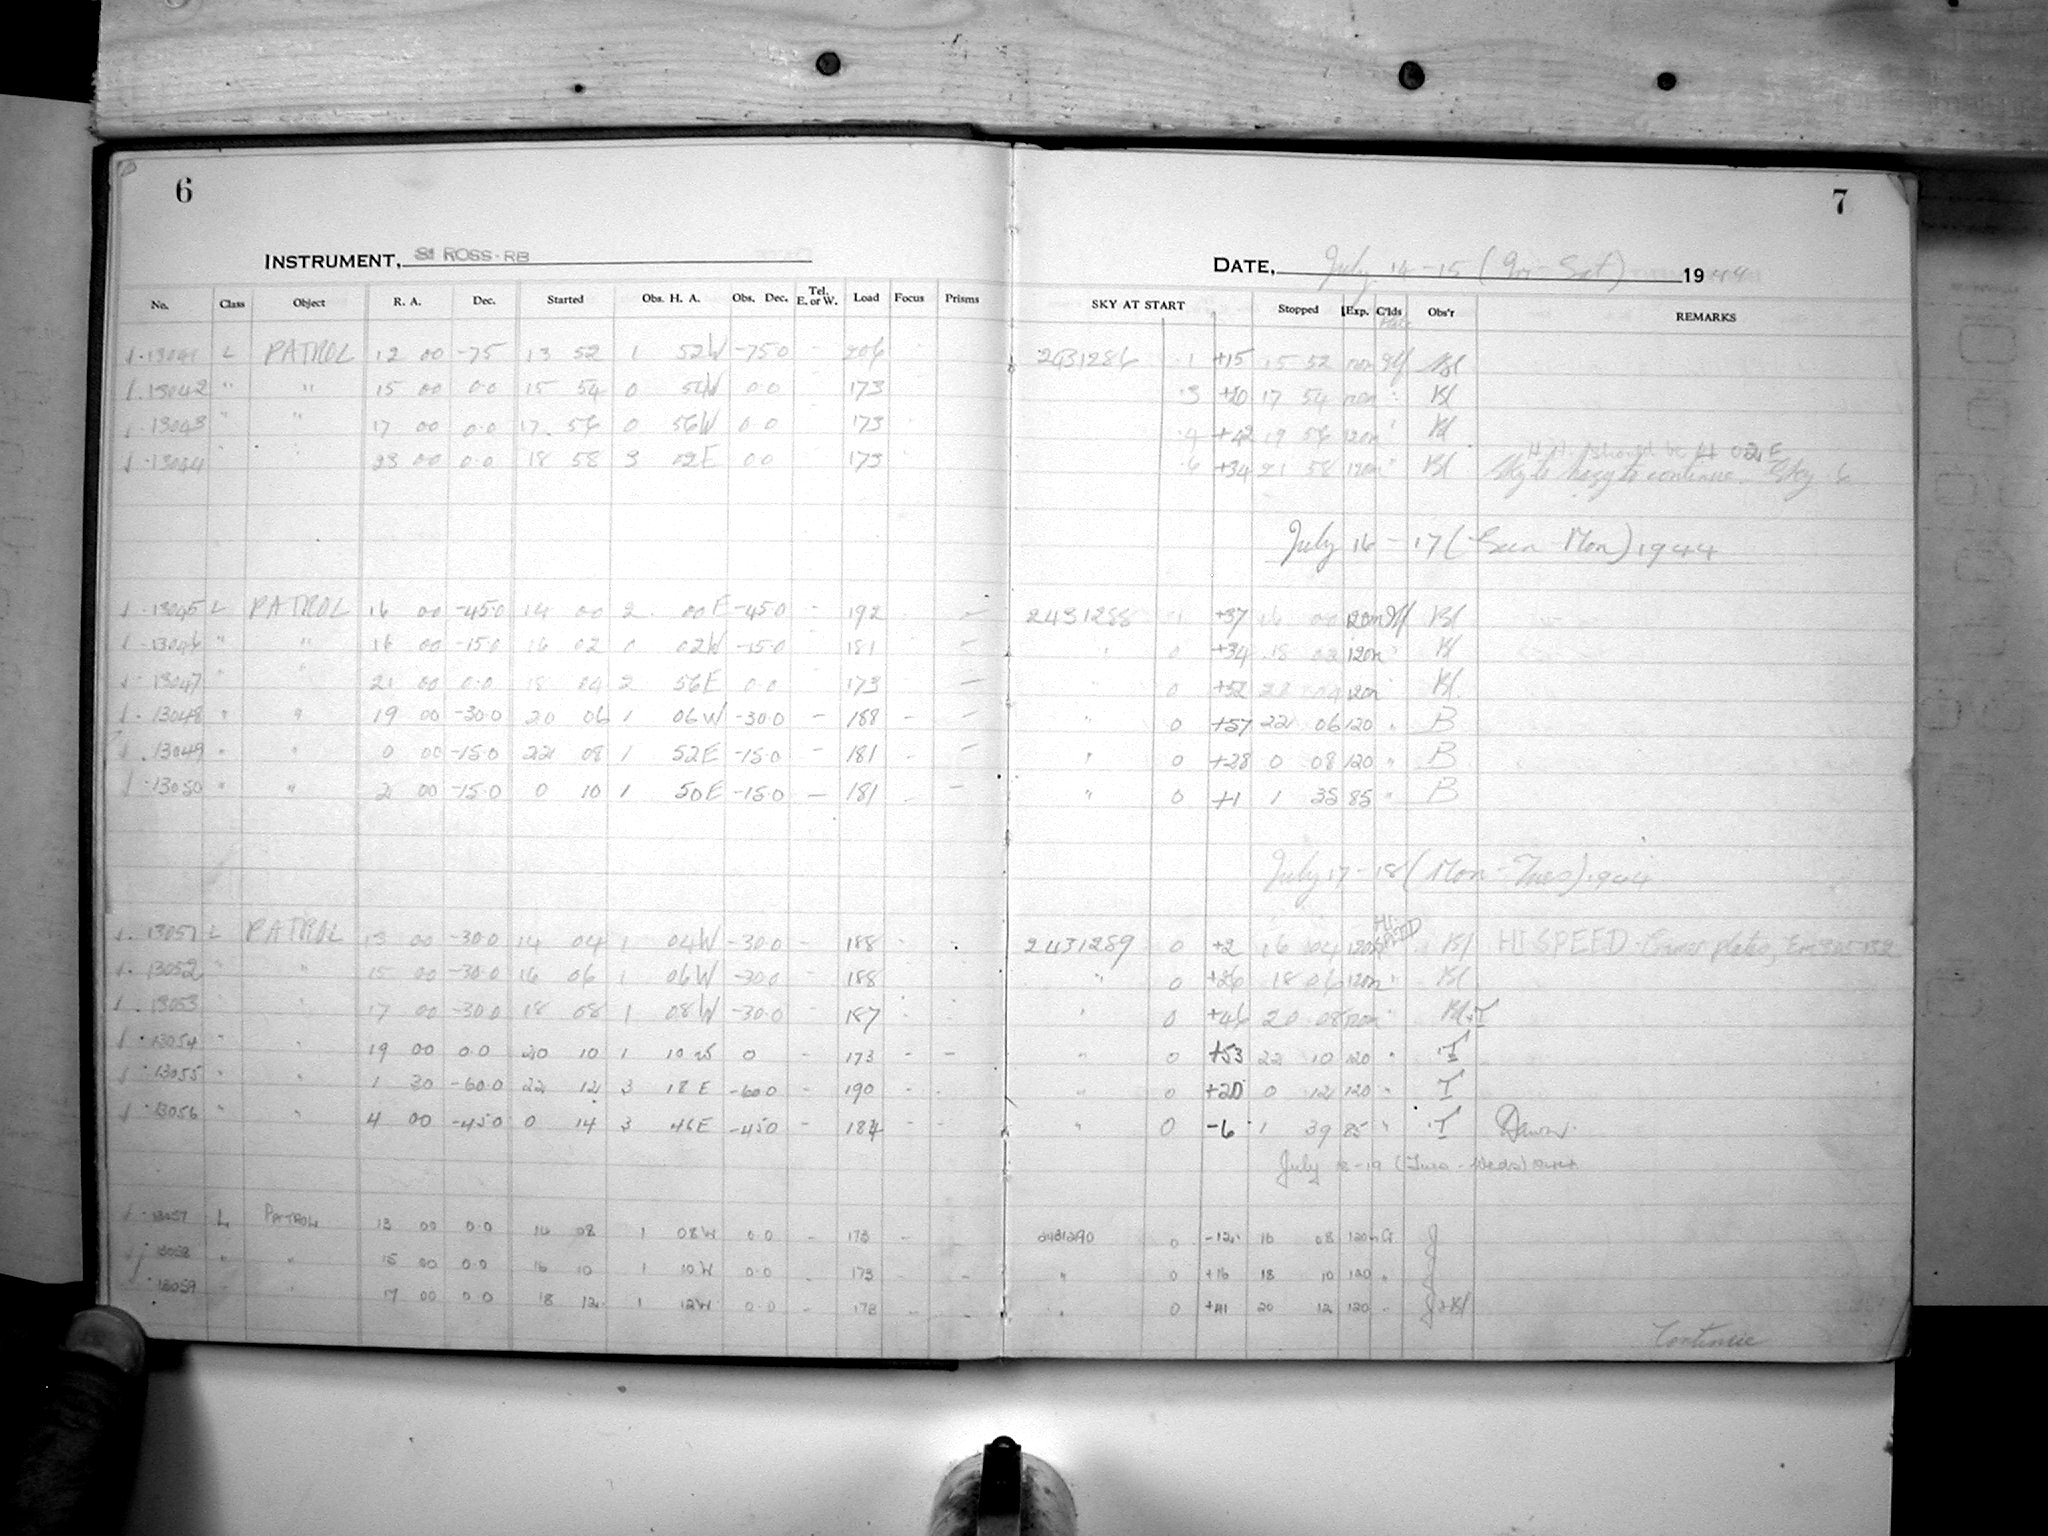 6
7
INSTRUMENT, ROSS-RB
DATE, July 14-15 ( Sat) 1944
No. Class Object R. A. Dec. Started Obs. H. A. Obs. Dec. Tel. E. or W. Load Focus Prisms SKY AT START Stopped Exp. C'lds Obs'r REMARKS
13041 L PATROL 12 00 -75 13 52 1 52W -75.0 - 206 2431286 .1 +15 15 52 Bl
13042 " " 15 00 0.0 15 54 0 54W 0.0 173 .3 17 54 Bl
13043 " " 17 00 0.0 17 56 0 56W 0.0 173 +42 19 56 120m Bl
13044 " " 23 00 0.0 18 58 3 02E 0.0 173 +34 21 58 120m Bl
H.A. should be 4 02 E
Sky to hazy to continue. Sky 6
July 16-17 (Sun-Mon) 1944
13045 L PATROL 16 00 -45.0 14 00 2 00E -45.0 - 192 - 2431288 1 +37 16 00 120m Bl
13046 " " 16 00 -15.0 16 02 0 02W -15.0 - 181 - " 0 +34 18 02 120m Bl
13047 " " 21 00 0.0 18 04 2 56E 0.0 173 - " 0 +52 20 04 120m Bl
13048 " " 19 00 -30.0 20 06 1 06W -30.0 - 188 - - " 0 +57 22 06 120 " B
13049 " " 0 00 -15.0 22 08 1 52E -15.0 - 181 - - " 0 +28 0 08 120 " B
13050 " " 2 00 -15.0 0 10 1 50E -15.0 - 181 - - " 0 +1 1 35 85 " B
July 17-18 (Mon-Tues) 1944
13051 L PATROL 13 00 -30.0 14 04 1 04W -30.0 - 188 - - 2431289 0 +2 16 04 120m HI SPEED Bl HI SPEED
13052 " " 15 00 -30.0 16 06 1 06W -30.0 188 " 0 +26 18 06 120m " Bl
13053 " " 17 00 -30.0 18 08 1 08W -30.0 - 187 " 0 +46 20 08 120m " Bl+I
13054 " " 19 00 0.0 20 10 1 10W 0 - 173 - - " 0 +53 22 10 120 " I
13055 " " 1 30 -60.0 22 12 3 18E -60.0 - 190 - - " 0 +20 0 12 120 " I
13056 " " 4 00 -45.0 0 14 3 46E -45.0 - 184 - - " 0 -6 1 39 85 " I Dawn.
July 18-19 (Tues-Weds) 1944
13057 L PATROL 13 00 0.0 14 08 1 08W 0.0 - 173 - - 2431290 0 -12 16 08 120m J
13058 " " 15 00 0.0 16 10 1 10W 0.0 - 173 - " 0 +16 18 10 120 " J
13059 " " 17 00 0.0 18 12 1 12W 0.0 - 173 - - " 0 +41 20 12 120 " J+Bl
Continue